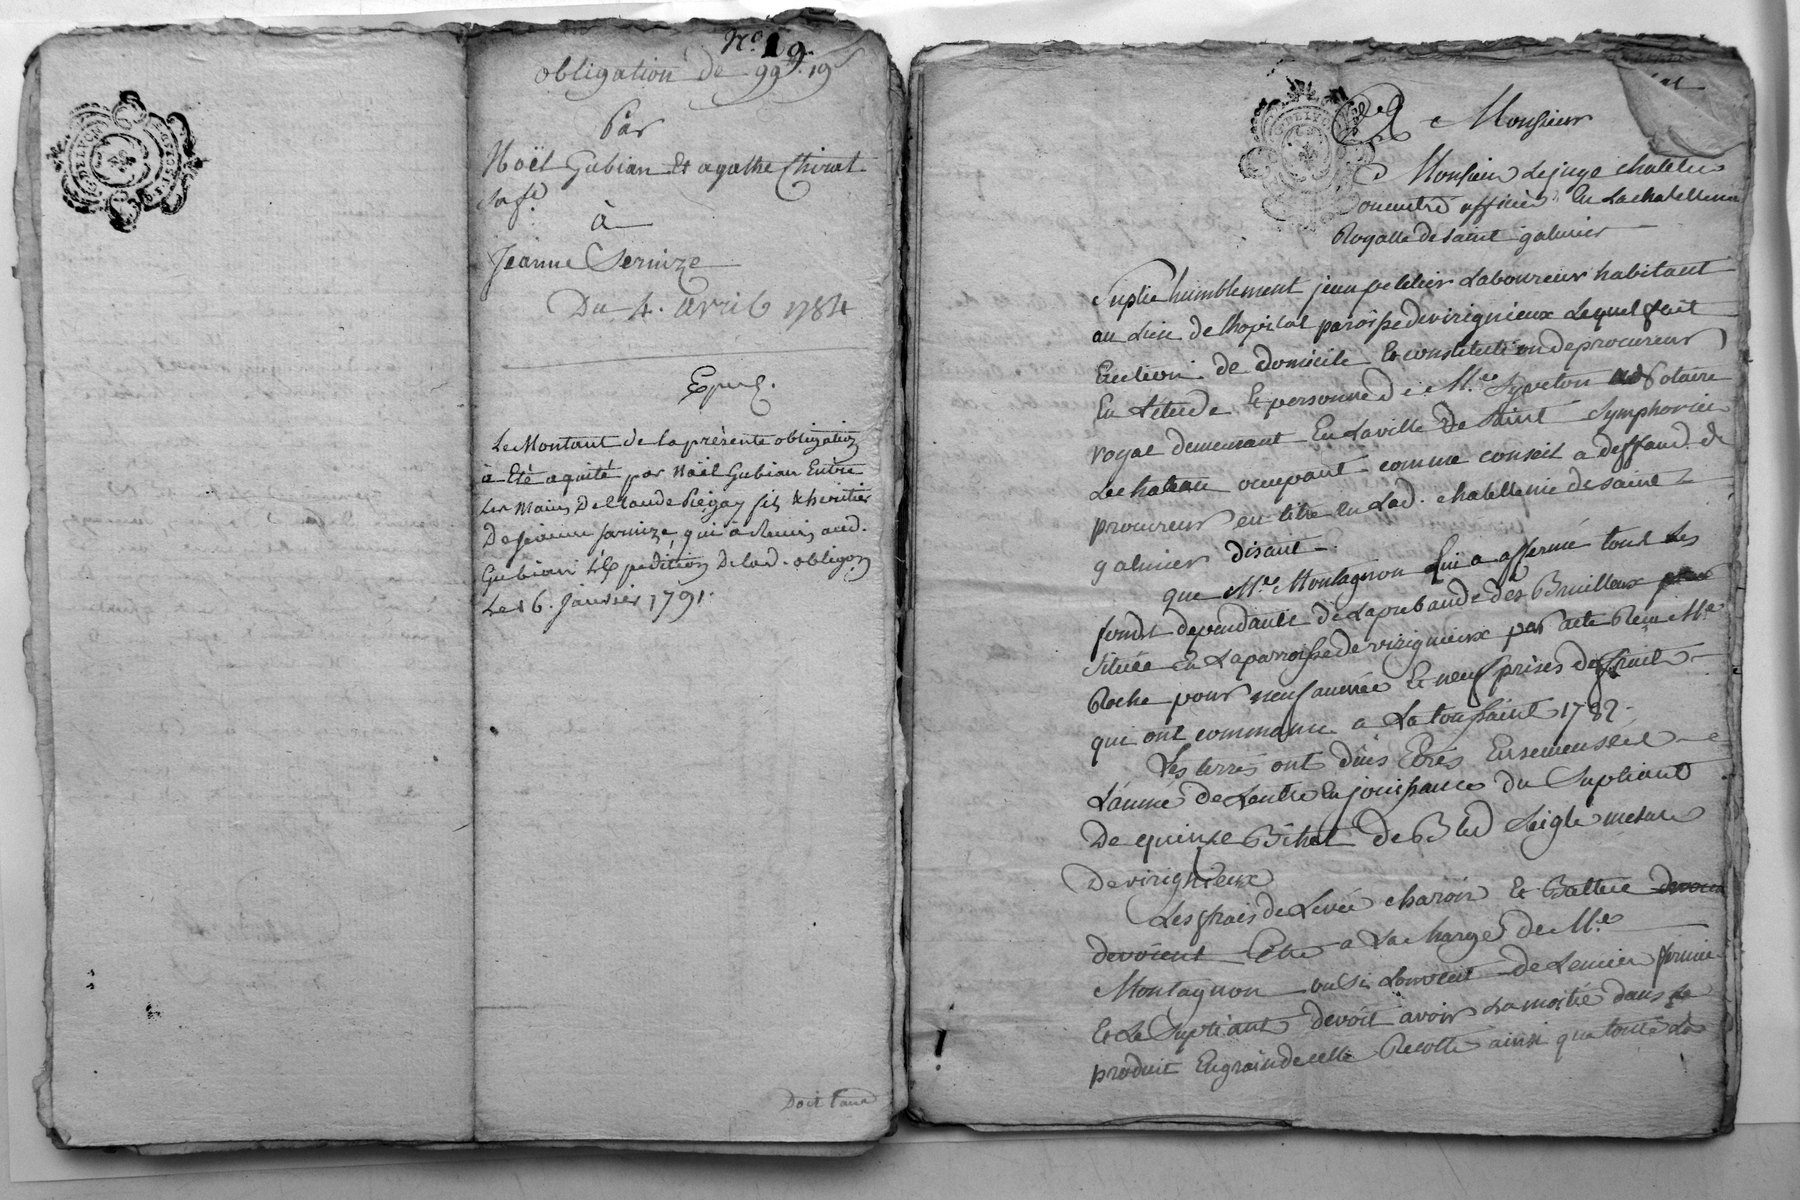 N.o 19.
obligation de 99# 19s
Par
Noël Gubian Et agathe Chirat
sa fe.
à
Jeanne Sernize
Du 4. avril 1784
Exped.
Le Montant de la présente obligation
à Eté aquité par Noël Gubian Entre
Les Mains De Claude Piégay fils & heritier
De Jeanne Sernize, qui à Remis aud.
Gubian l'Expedition De lad. obligon
Le 16. Janvier 1791.
Doit taxe
G. DE LYON
A Monsieur
Monsieur Le juge chatelain
ou autre officier En La chatellenie
Royalle de saint galmier
Suplie humblement jean peletier Laboureur habitant
au Lieu de lhopital paroisse de virignieux Lequel fait
Election de domicile Et constitution de procureur
En Letude Et personne de M.e Syveton Notaire
royal demeurant En La ville de Saint Symphorien
Le chateau occupant comme conseil a deffaud de
procureur en titre En Lad. chatellenie de saint
galmier disant
que M.e Montagnon Lui a affermé tout Les
fonds dependants de La prebande des Bruilleux
Située En La parroisse de virignieux par acte Reçu M.e
Roche pour neuf année Et neuf prises de fruit
qui ont commancé a La toussaint 1782.
Les terres ont düs Etres Ensemensées
L'année de Lentrée En jouissance du Supliant
De quinze Bichet de Bled Seigle mesure
De virignieux
Les frais de Levée charoir Et Batture devoien
devoient Etre a La charge de M.e
Montagnon ou Si Lon veut de Lencien fermier
Et Le Supliant devoit avoir La moitié dans Le
produit En grain de cette Recolte ainsi que toutte La